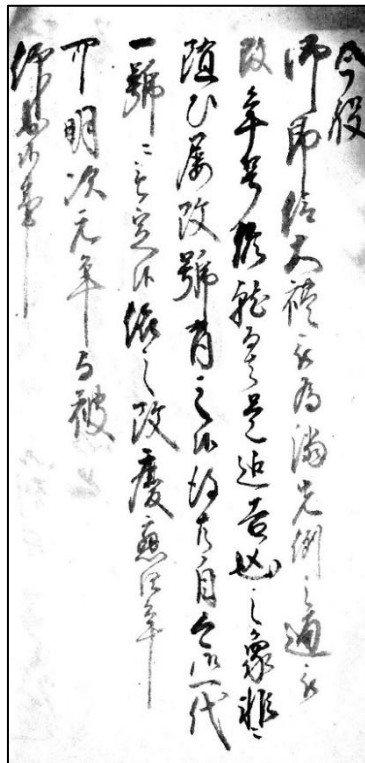 今般
御即位大禮被為濟先例之通被
改年号候就而者是迄吉凶之象兆ニ
随ひ屡改號有之候得共自今御一代
一號ニ被定候依之改慶應四年
可明治元年与被
仰出候事